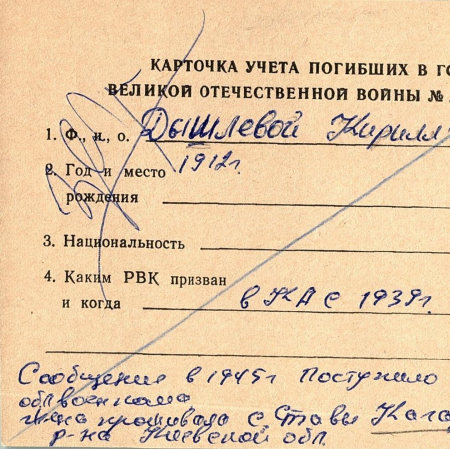 КАРТОЧКА УЧЕТА ПОГИБШИХ В ГО
ВЕЛИКОЙ ОТЕЧЕСТВЕННОЙ ВОЙНЫ №
1. Ф., и., о. Дышлевой Кирилл
2. Год и место 1912г.
рождения
3. Национальность
4. Каким РВК призван
и когда в КА с 1939г.
Сообщение в 1945г поступило
облвоенкома
жена проживала с. Ставы Кага
р-на Киевской обл.